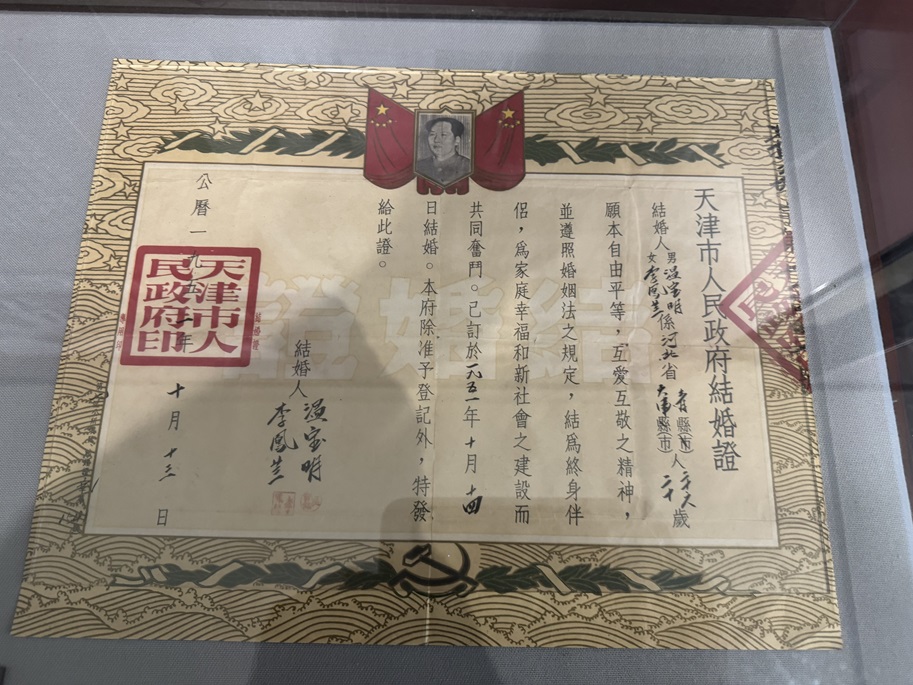 天津市人民政府結婚證
結婚人
男
女
係河北省
縣(市)
縣(市)
人
二十八
二十
歲
願本自由平等，互愛互敬之精神，
並遵照婚姻法之規定，結為終身伴
侶，為家庭幸福和新社會之建設而
共同奮鬥。已訂於一九五一年十月十四
日結婚。本府除准予登記外，特發
給此證。
結婚證
結婚人
寶明
李鳳蘭
公曆一九五一年十月十三日
天津市人
民政府印